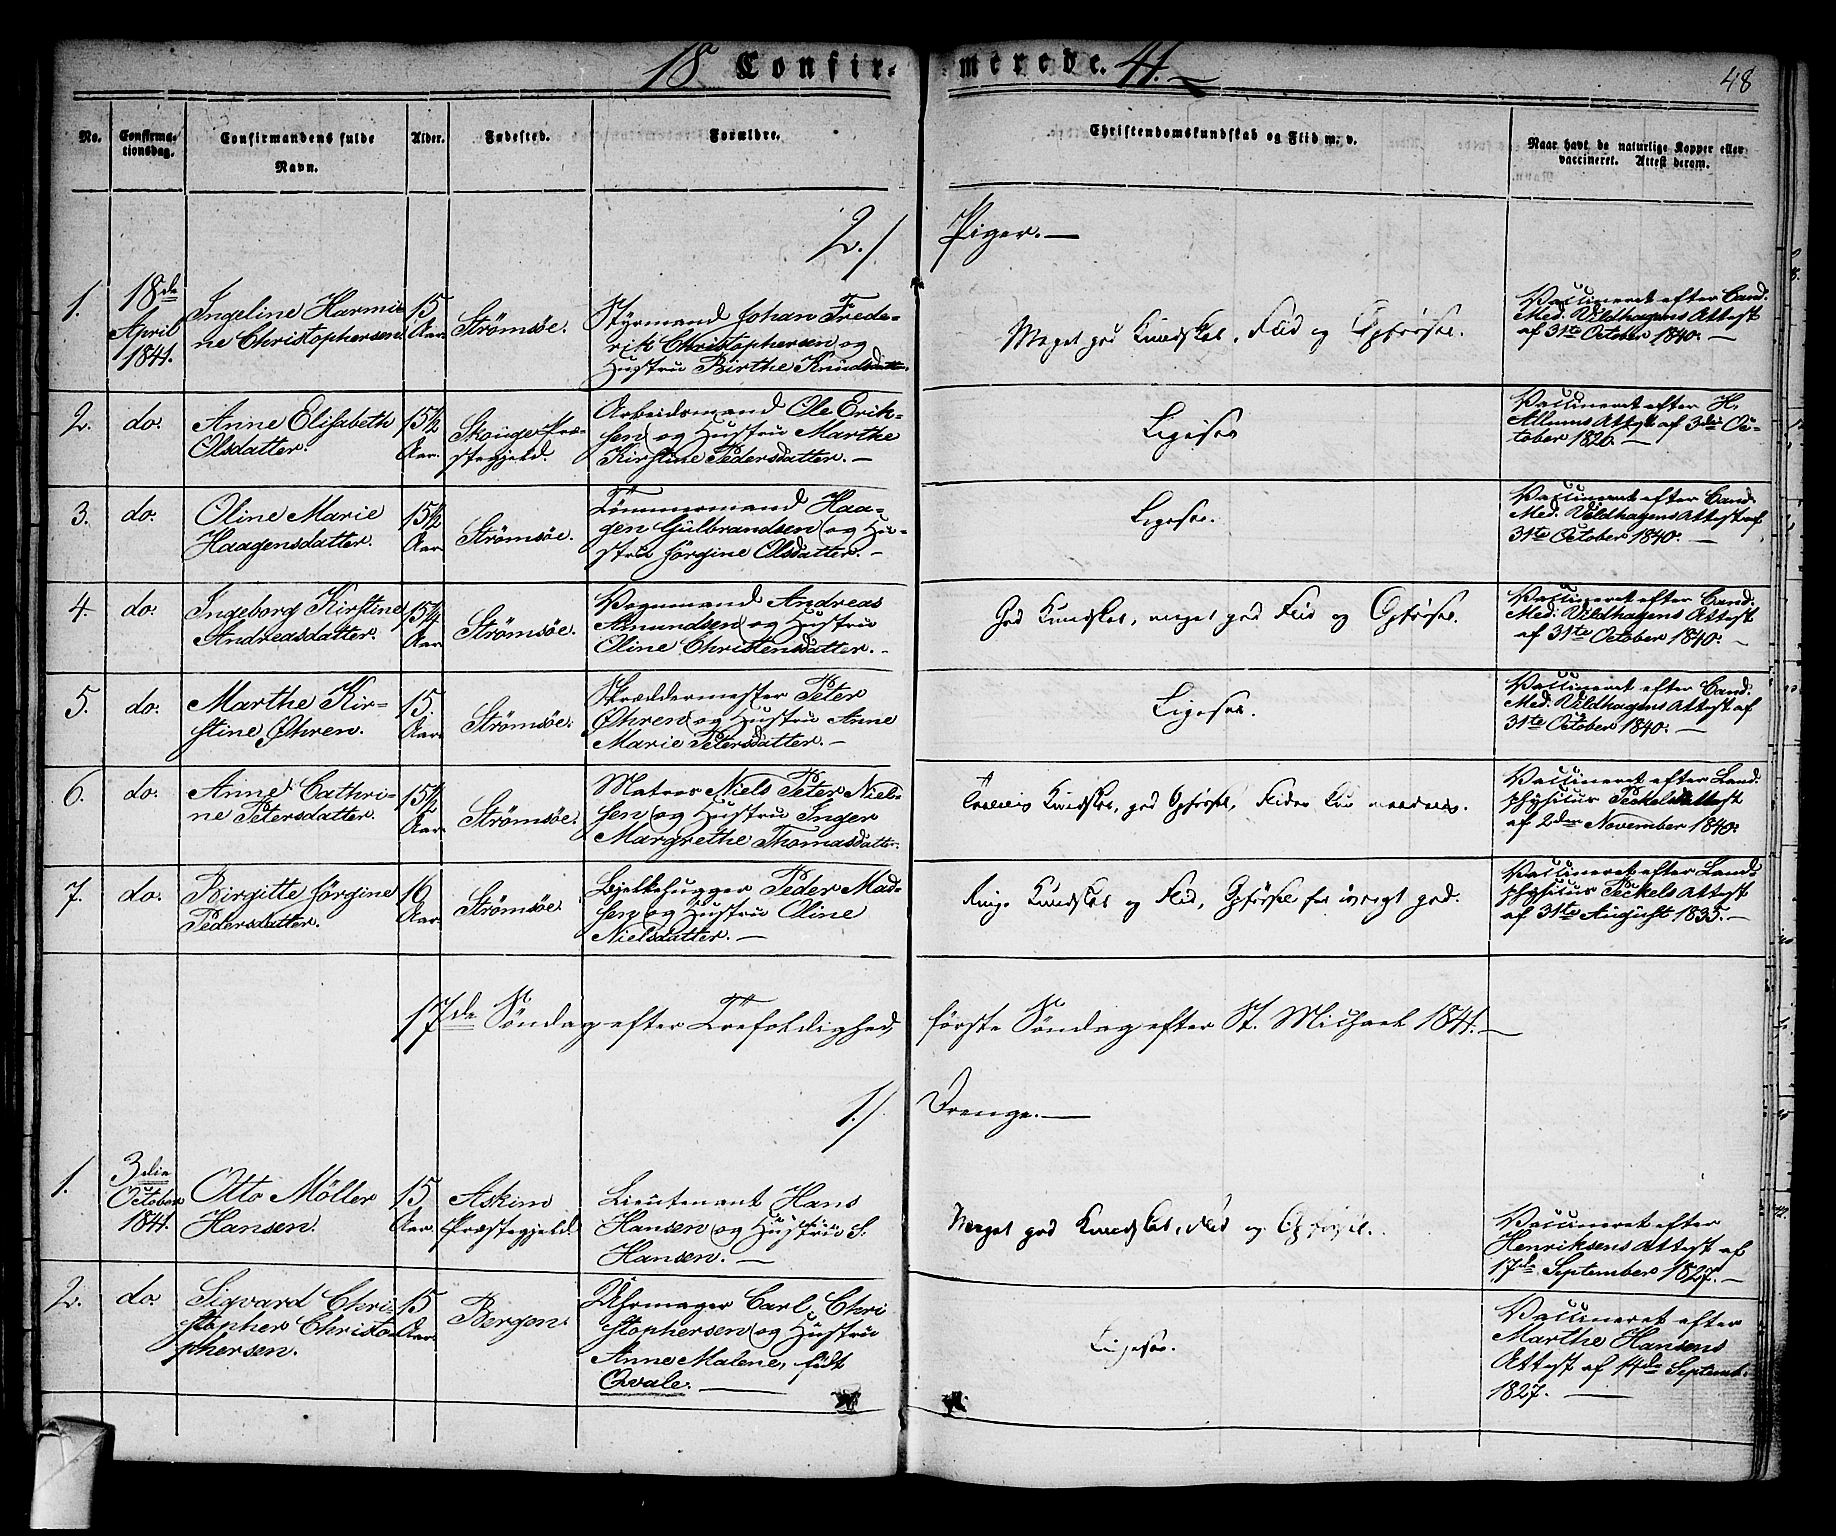 18 Confir- merede. 41.
48
No.
Confirma-
tionsdag.
Confirmandens fulde
Navn.
Alder.
Fødested.
Forældre.
Christendomskundskab og Flid m. v.
Naar havt de naturlige Kopper eller
vaccineret. Attest derom.
2./ Piger.—
1.
18de
April
1841.
Ingeline Harmi-
ne Christophersen.
15
Aar.
Strömsöe.
Styrmand Johan Frede-
rik Christophersen og
Hustru Birthe Knudsdatter.
Meget god Kundskab, Flid og Opførsel.
Vaccineret efter Cand.
Med. Vildhagens Attest
af 31te October 1840.—
2.
do.
Anne Elisabeth
Olsdatter.
15½
Aar.
Skouger Præ-
stegjeld.
Arbeidsmand Ole Erik-
sen og Hustru Marthe
Kirstine Pedersdatter.—
Ligesaa
Vaccineret efter H.
Allums Attest af 3die Oc-
tober 1826.—
3.
do.
Oline Marie
Haagensdatter.
15½
Aar.
Strömsöe.
Tömmermand Haa-
gen Gulbrandsen og Hu-
stru Jörgine Olsdatter.—
Ligesaa.
Vaccineret efter Cand.
Med. Vildhagens Attest af
31te October 1840.—
4.
do.
Ingeborg Kirstine
Andreasdatter.
15¼
Aar.
Strömsöe.
Vognmand Andreas
Amundsen og Hustru
Oline Christensdatter.—
God Kundskab, meget god Flid og Opførsel.
Vaccineret efter Cand.
Med. Vildhagens Attest
af 31te October 1840.
5.
do.
Marthe Kir-
stine Öhren.
15.
Aar.
Strömsöe.
Skræddermester Peter
Öhren og Hustru Anne
Marie Petersdatter.—
Ligesaa.
Vaccineret efter Cand.
Med. Vildhagens Attest af
31te October 1840.—
6.
do.
Anne Cathri-
ne Petersdatter.
15½
Aar.
Strömsöe.
Matros Niels Peter Niel-
sen og Hustru Inger
Margrethe Thomasdatter.
Kundskab, god Opførsel, Fliden kun
Vaccineret efter Land-
physicus Peckels Attest
af 2den November 1840.
7.
do.
Birgitte Jörgine
Pedersdatter.
16
Aar.
Strömsöe.
Bjelkehugger Peder Mad-
sen og Hustru Oline
Nielsdatter.—
Ringe Kundskab og Flid, Opførsel for øvrigt god.
Vaccineret efter Land-
physicus Peckels Attest
af 31te August 1835.—
17de Söndag efter Trefoldighed, förste Söndag efter St. Michael 1841.—
1./ Drenge.—
1.
3die
October
1841.
Otto Möller
Hansen.
15
Aar.
Askim
Præstegjeld.
Lieutenant Hans
Hansen og Hustru S.
Hansen.—
Meget god Kundskab, Flid og Opførsel.
Vaccineret efter
Henriksens Attest af
17de September 1827.—
2.
do.
Sigvard Chri-
stopher Christo-
phersen.
15
Aar.
Bergen.
Uhrmager Carl Chri-
stophersen og Hustru
Anne Malene, född
Qvale.—
Ligesaa.
Vaccineret efter
Marthe Hansens
Attest af 14de Septemb.
1827.—